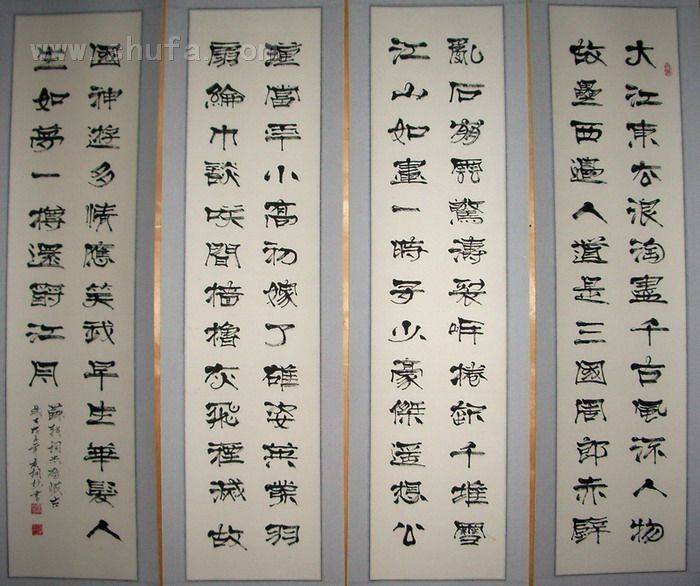 大江東去浪淘盡千古風流人物
故壘西邊人道是三國周郎赤壁
亂石崩雲驚濤裂岸捲起千堆雪
江山如畫一時多少豪傑遙想公
瑾當年小喬初嫁了雄姿英發羽
扇綸巾談笑間檣櫓灰飛煙滅故
國神遊多情應笑我早生華髮人
生如夢一樽還酹江月
蘇軾詞赤壁懷古
書
www.shufa.com